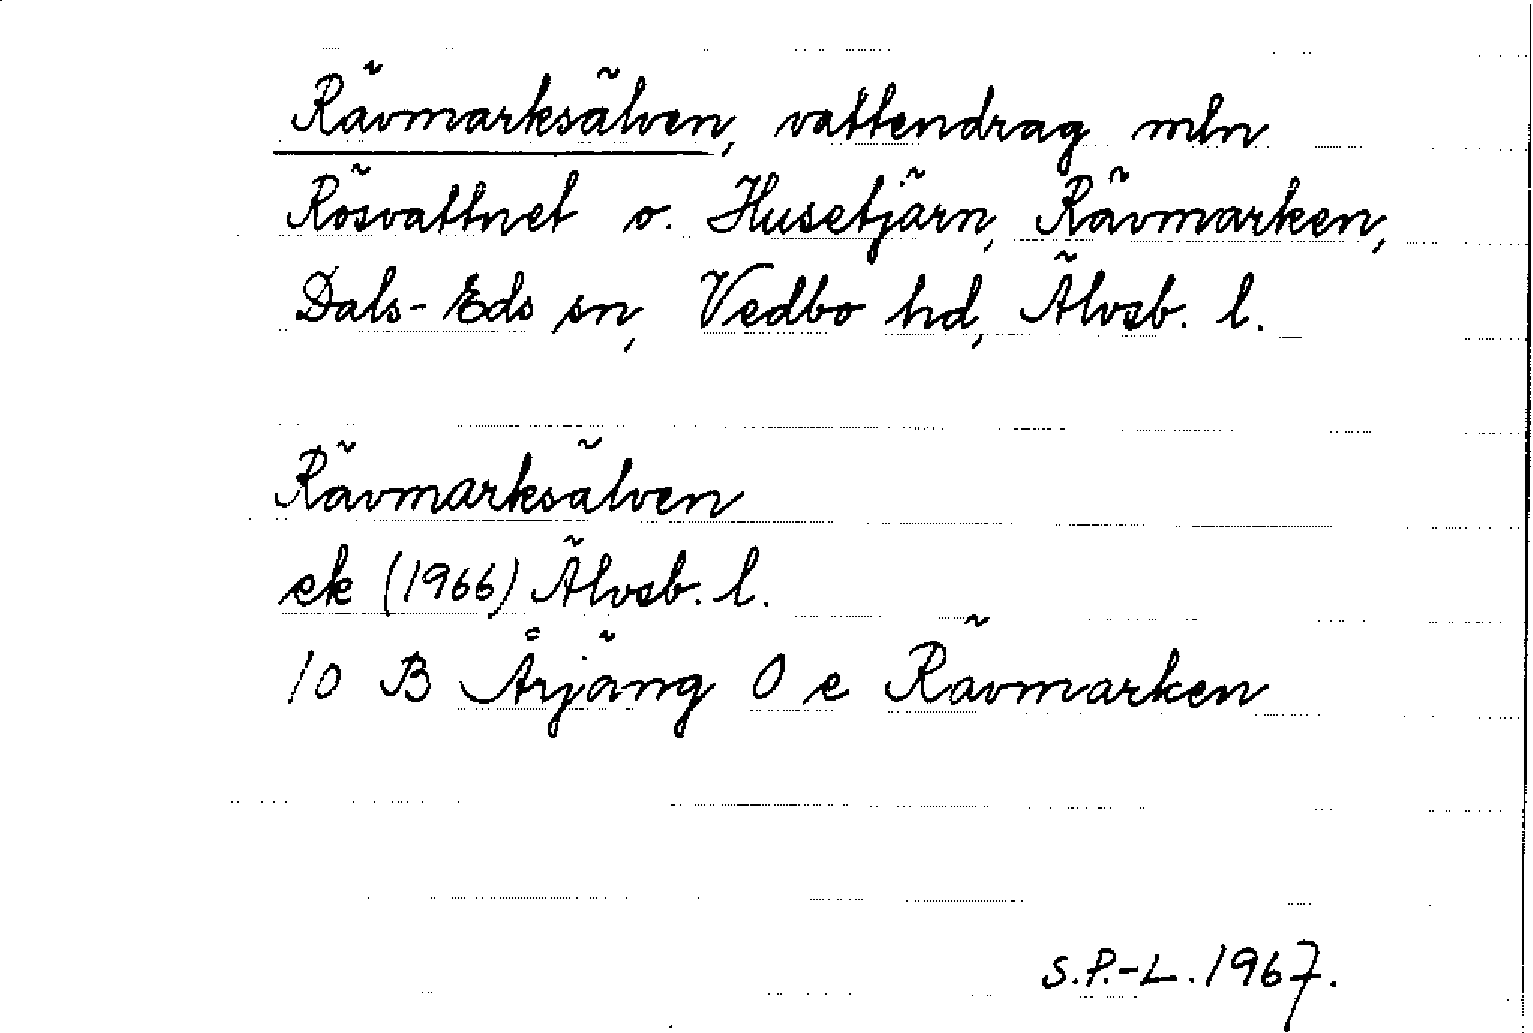 Rävmarksälven, vattendrag mln
Rösvattnet o. Husetjärn, Rävmarken,
Dals-Eds sn, Vedbo hd, Älvsb. l.
Rävmarksälven
ek (1966) Älvsb. l.
10 B Årjäng 0 e Rävmarken
S.P.-L. 1967.